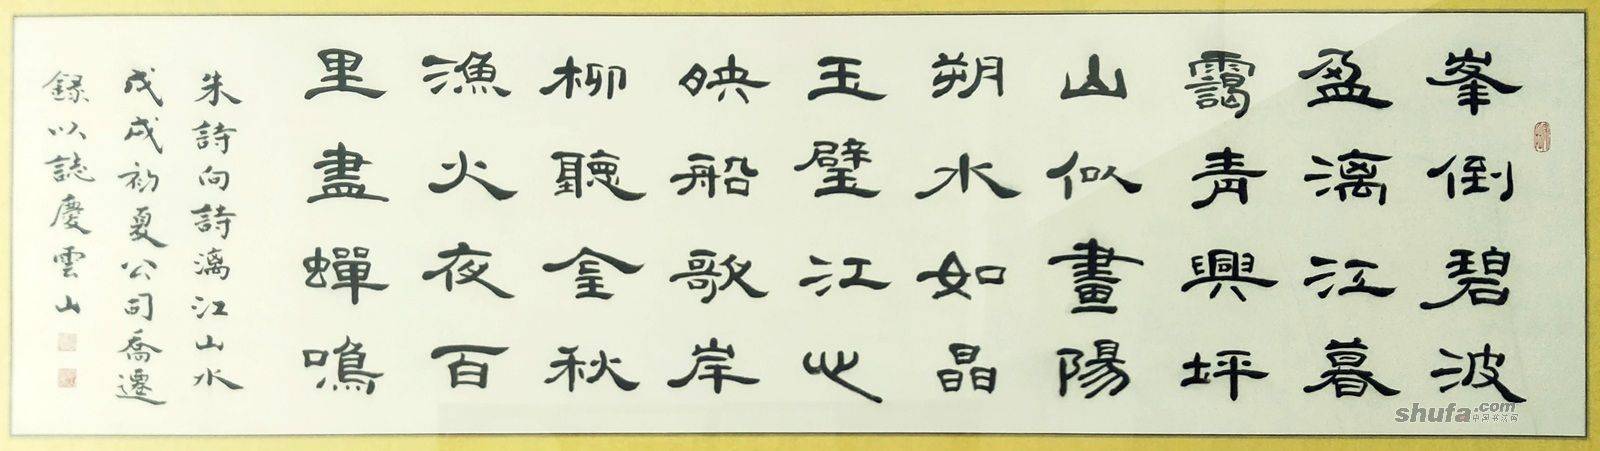 峯倒碧波
盈漓江暮
靄青興坪
山似畫陽
朔水如晶
玉璧江心
映船歌岸
柳聽金秋
漁火夜百
里盡蟬鳴
朱詩向詩漓江山水
戊戌初夏公司喬遷
録以誌慶雲山
shufa.com
中国书法网